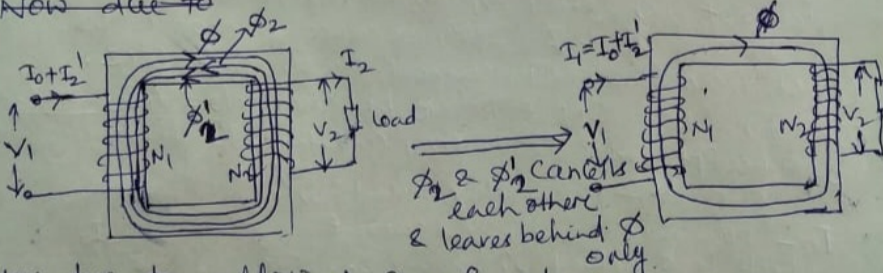 Now due to
ϕ
ϕ2
I0+I2'
I2
ϕ2'
V1
N1
N2
V2
load
ϕ2 & ϕ2' Cancells
each othere
& leaves behind ϕ
only
ϕ
I1=I0+I2'
V1
N1
N2
V2